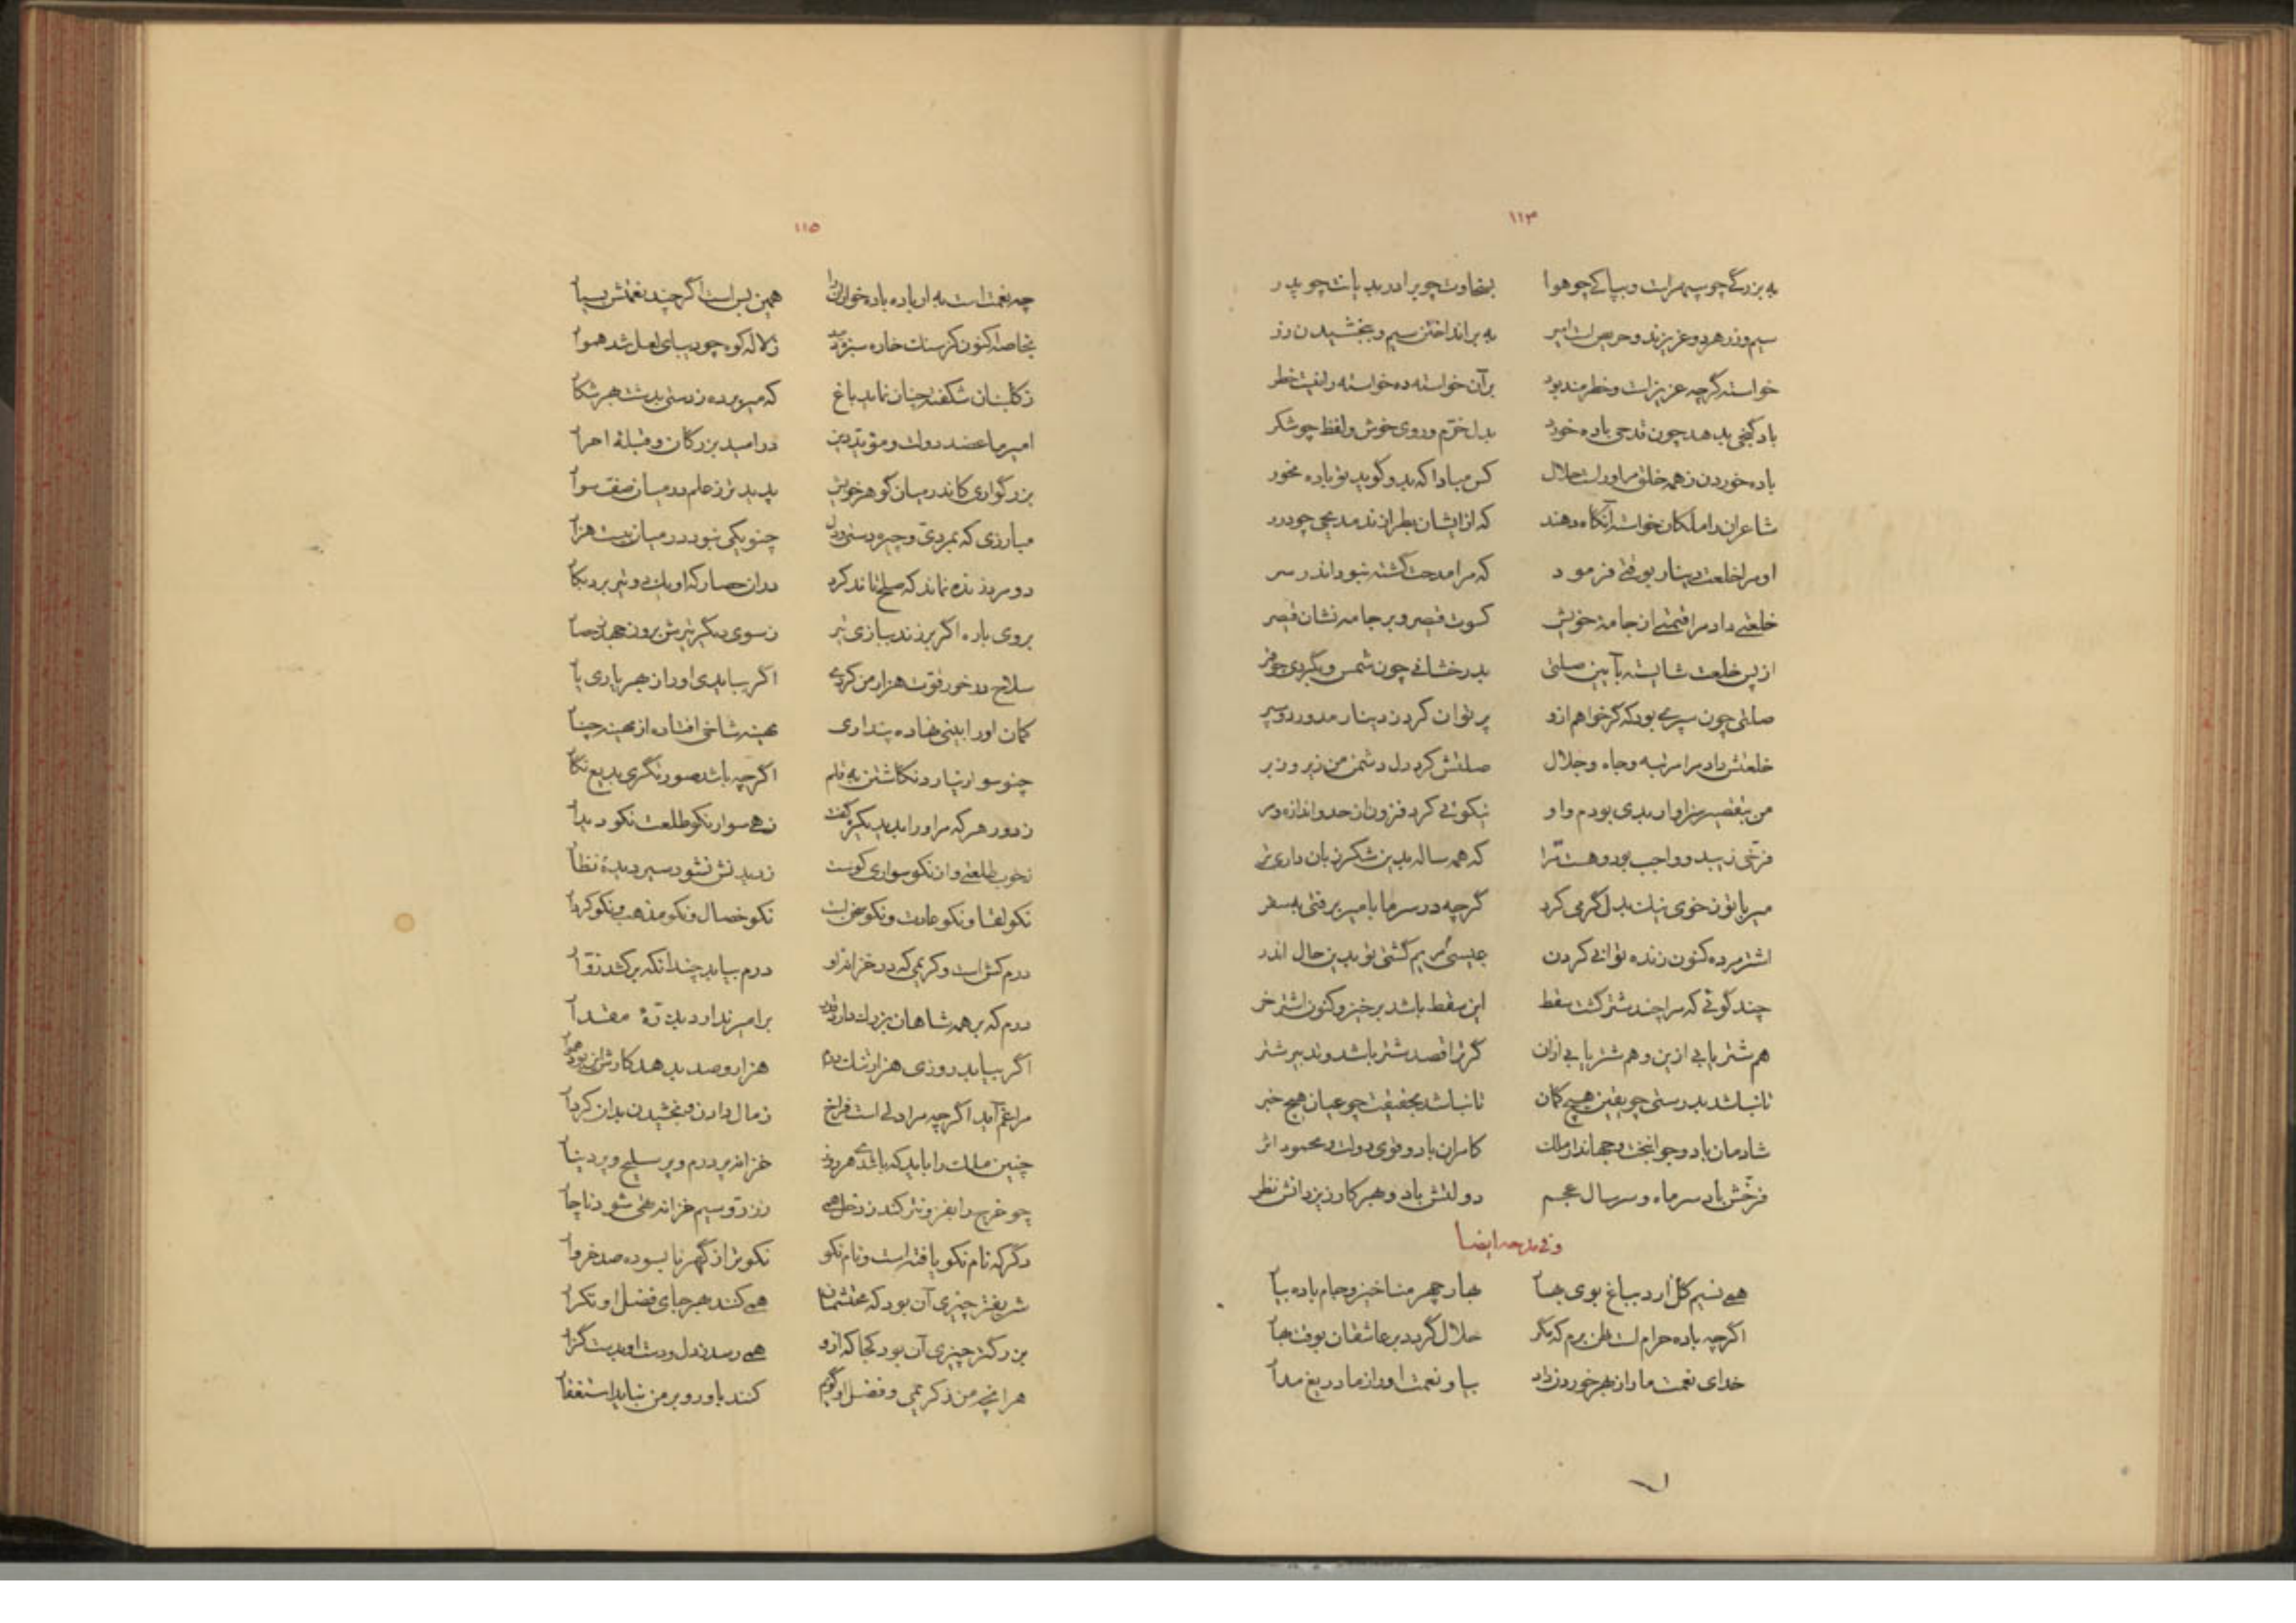 ۱۱۴
به بزرگی چو سپهرست و بپاکی چو هوا بسخاوت چو برادر بدیانت چو پدر
سیم و زر هر دو عزیزند و حریص است امیر به برانداختن سیم و ببخشیدن زر
خواسته گرچه عزیز است و خطرمند بود بر آن خواسته ده خواسته را نیست خطر
باد گنجی بدهد چون قدحی باده خورد بدل خرم و روی خوش و لفظ چو شکر
باده خوردن ز همه خلق مر او راست حلال کس مبادا که بدو گوید تو باده مخور
شاعران را ملکان خواسته آنگاه دهند که از ایشان بطرازند مدیحی چو درر
او مرا خلعت و دینار بوقتی فرمود که مرا مدحت گشته نبود اندر سر
خلعتی داد مرا قیمتی از جامهٔ خویش کسوت قیصر و بر جامه نشان قیصر
از پس خلعت شایسته بآیین صلتی بدرخشانی چون شمس و بگردی چو قمر
صلتی چون سپری بود که گر خواهم ازو پر توان کردن دینار مدور دو سپر
خلعتش داد مرا مرتبه و جاه و جلال صلتش کرد دل دشمن من زیر و زبر
من بتقصیر سزاوار بدی بودم و او نیکوئی کرد فزون از حد و اندازه و مر
فرخی زیبد و واجب بود و هست ترا که همه ساله بدین شکر زبان داری تر
میر با تو ز خوی نیک بدل گرمی کرد گرچه در سرما با میر برفتی بسفر
اشتر مرده کنون زنده توانی کردن عیسی مریم گشتی تو بدین حال اندر
چند گوئی که مرا چند شتر گشت سقط این سقط باشد برخیز و کنون اشتر خر
هم شتر یابی ازین و هم شتر یابی ازان گر ترا قصد شتر باشد و تدبیر شتر
تا نباشد بدرستی چو یقین هیچ گمان تا نباشد بحقیقت چو عیان هیچ خبر
شادمان باد و جوانبخت و جهاندار ملک کامران باد و قوی دولت و محمود اثر
فرخش باد سر ماه و سر سال عجم دولتش باد و بهر کار ز یزدانش نظر
و فی مدحه ایضا
همی نسیم گل آرد بباغ بوی بهار بهار چهر منا خیز و جام باده بیار
اگرچه باده حرام است ظن برم که مگر حلال گردد بر عاشقان بوقت بهار
خدای نعمت ما را ز بهر خوردن داد بیا و نعمت او را ز ما دریغ مدار
۱۱۵
چه نعمت است به از باده باده خواران را همین بس است اگر چند نعمتش بسیار
بخاصه اکنون کز سنگ خاره سبزه دمید ز لاله کوه چو دیبای لعل شد هموار
ز گلبنان شکفته چنان نماید باغ که میر پره زدستی بدشت بهر شکار
امیر ما عضد دولت و مؤید دین در امید بزرگان و قبلهٔ احرار
بزرگواری کاندر میان گوهر خویش پدیدتر ز علم در میان صف سوار
مبارزی که بمردی و چیره دستی و دل چنو یکی نبود در میان بیست هزار
دو مرد زنده نماند که صلح تاند کرد در آن حصار که او یک دو تیر برد بکار
بروی باره اگر برزند ببازی تیر ز سوی دیگر تیرش برون جهد ز حصار
سلاح در خور قوت هزار من کردی اگر بیابدی او را ز بهر یاری یار
کمان او را بینی فتاده پنداری بهینه شاخی افتاده از بهینه چنار
چنو سوار نیارد نگاشتن به قلم اگرچه باشد صورتگری بدیع نگار
ز دور هرکه مر او را بدید یکره گفت زهی سوار نکو طلعت نکو دیدار
ز خوب طلعتی و از نکو سواری کوست ز دیدنش نشود سیر دیدهٔ نظار
نکو لقا و نکو عادت و نکو سخن است نکو خصال و نکو مذهب و نکو کردار
درم کش است و کریمی که در خزانهٔ او درم نیابد چندانکه برکشد زوار
درم که بر همه شاهان بزرگ دارد قدر بر امیر ندارد بذرهٔ مقدار
اگر بیابد روزی هزار تنگ درم هزار و صد بدهد کارش این بود هموار
مرا غم آید اگرچه مرا دلی است فراخ ز مال دادن و بخشیدن بدان کردار
چنین ملک را باید که باشدی هر روز خزانه پر درم و پر سلیح و پر دینار
چو خرج را بفزونتر کند ز دخل همی ز زر و سیم خزانه تهی شود ناچار
دگر که نام نکو یافته است و نام نکو نکوتر از گهر نابسوده صد خروار
شریفتر چیزی آن بود که محتشمان همی کنند بهر جای فضل او تکرار
بزرگتر چیزی آن بود کجا که ازو همی رسد بدل و دست او بدست گزار
هرانچه من ز کریمی و فضل او گویم کنند باور و بر من نباید استغفار